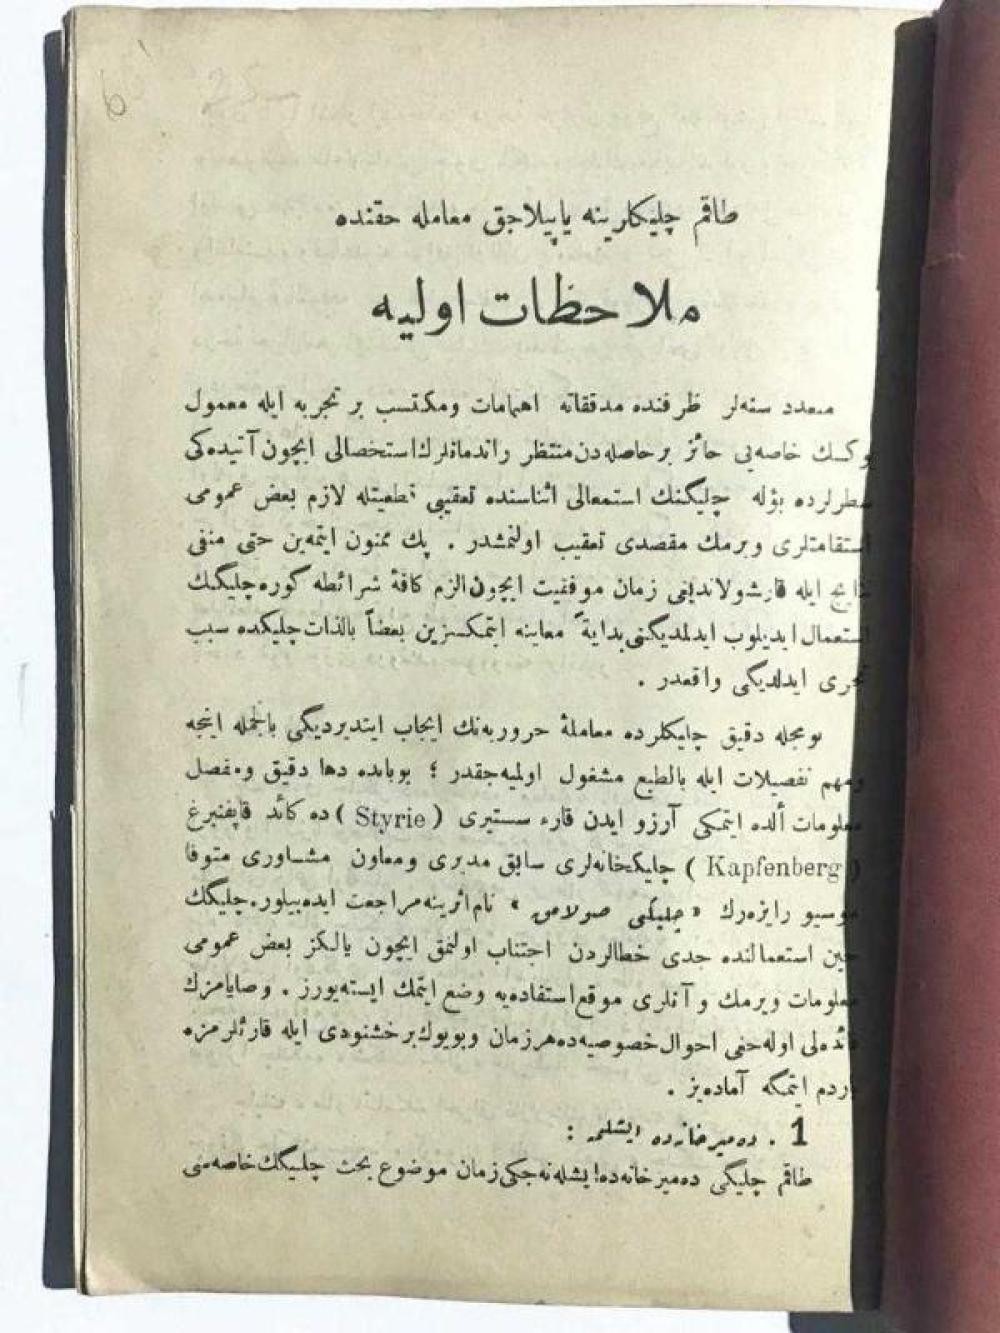 طاقم چلیکلرینه یاپیلاجق معامله حقنده
ملاحظات اولیه
متعدد سنه‌لر ظرفنده مدققانه اهتمامات ومکتسب بر تجربه ایله معمول
وکسك خاصه‌یی حائز بر حاصله‌دن منتظر راندمانلرك استحصالی ایچون آتیده‌کی
سطرلرده بویله چلیگك استعمالی اثناسنده تعقیبی قطعیتله لازم بعض عمومی
استقامتلری ویرمك مقصدی تعقیب اولنمشدر . پك ممنون ایتمه‌ین حتی منفی
نتایج ایله قارشولاندیغی زمان موفقیت ایچون الزم کافهٔ شرائطه کوره چلیگك
استعمال ایدیلوب ایدلمدیگنی بدایةً معاینه ایتمکسزین بعضاً بالذات چلیکده سبب
تحری ایدلدیگی واقعدر .
بو مجله دقیق چلیکلرده معاملهٔ حروریه‌نك ایجاب ایتدیردیگی بالجمله اینجه
ومهم تفصیلات ایله بالطبع مشغول اولمیه‌جقدر ؛ بوبابده دها دقیق ومفصل
معلومات ألده ایتمکی آرزو ایدن قارء سستیری ( Styrie ) ده کائد قاپفنبرغ
( Kapfenberg ) چلیکخانه‌لری سابق مدیری ومعاون مشاوری متوفا
موسیو رایزه‌رك « چلیکی صولامق » نام اثرینه مراجعت ایده‌بیلور . چلیگك
حین استعمالنده جدی خطالردن اجتناب اولنمق ایچون یالکز بعض عمومی
معلومات ویرمك و آنلری موقع استفاده‌یه وضع ایتمك ایسته‌یورز . وصایامزك
فائده‌لی اوله‌جغی احوال خصوصیه‌ده هرزمان وبویوك بر خشنودی ایله قارئلرمزه
یاردم ایتمگه آماده‌یز .
1 . ده‌میرخانه‌ده ایشلمه :
طاقم چلیگی ده‌میرخانه‌ده ایشله‌نه‌جکی زمان موضوع بحث چلیگك خاصه‌سی